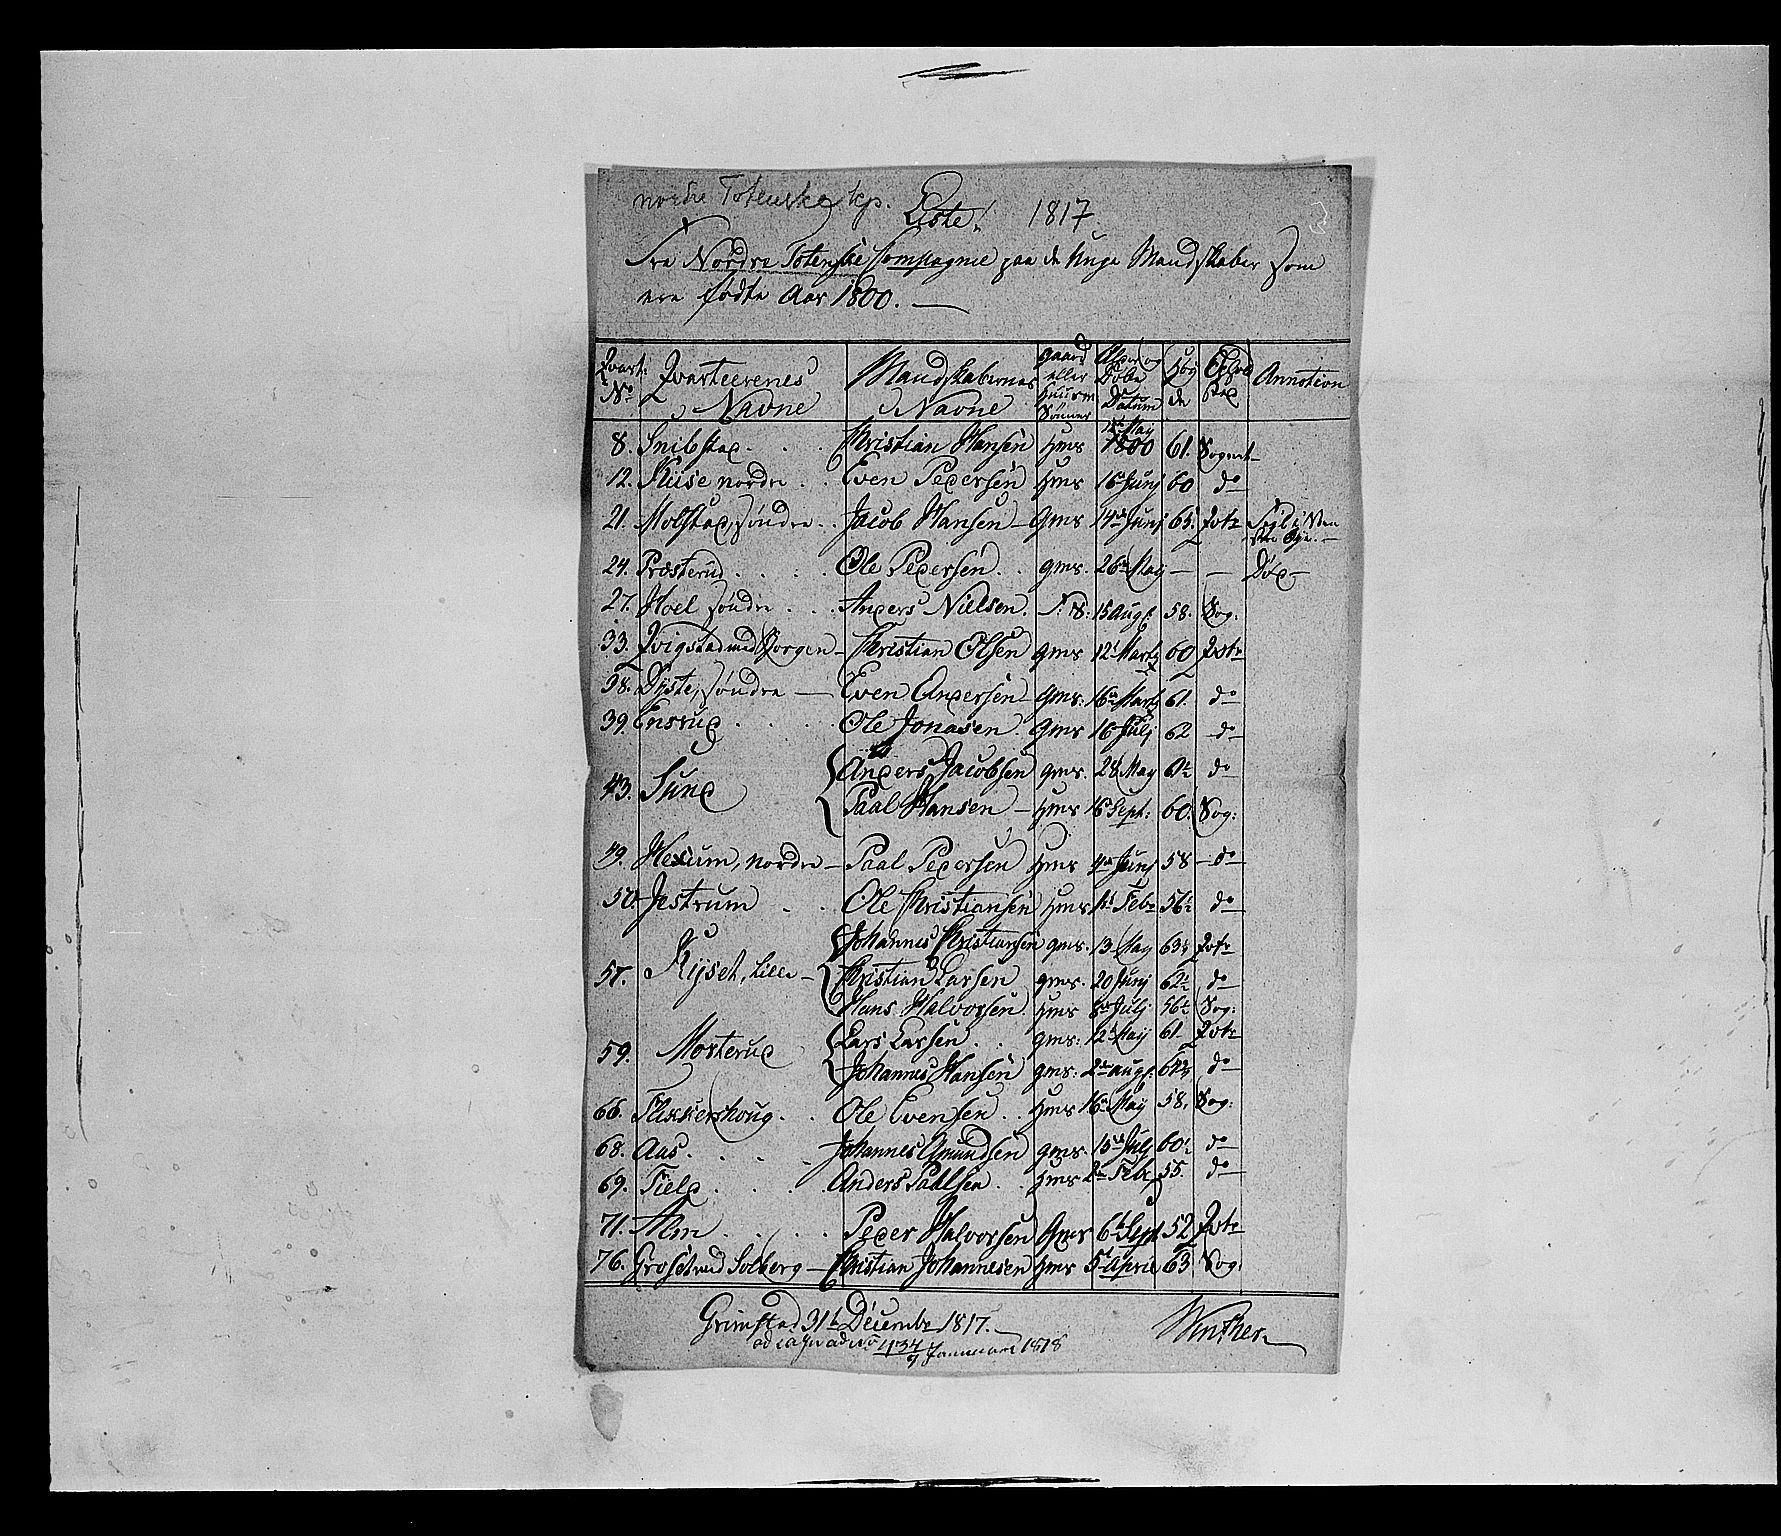 nordre Totenske kp.
Liste! 1817
Fra Nordre Totenske Compagnie paa de Unge Mandskaber som
ere fødte Aar 1800. —
Qvart: No Qvarteerenes Navne Mandskabernes Navne gaard eller Huusm Sønner Alder og Datum Høyde Annotion
8. Snibstad . . . Christian Hansen Hms May 1800 61. Sogent
12. Kiise nordre . . Even Pedersen Hms 16 Junj 60 do
21. Molstad, søndre . . Jacob Hansen — Gms 14de Junj 63. Qvtr
24. Præsterud . . . . Ole Pedersen . . gms. 26 May — — Død —
27. Hoel søndre . . . Anders Nielsen. S: S: 15 Augs: 58. Sog:
33. Qvigstad med Borgen — Christian Olsen gms 12 Marts 60 Qvtr
38. Dyste, søndre — Even Andersen Gms: 16 Marts 61. do
39. Ensrud . . . . Ole Jonasen. Gms 16 Julj 62 do
43. Sund { Anders Jacobsen gms. 28 May do
Paal Hansen — Hms 16 Sept: 60. Sog:
49. Hexum, nordre — Paal Pedersen Hms 4de Junj 58 — do
50. Jestrum . . Ole Christiansen Hms 1st Febr 56½ do
57. Kyset, Lille — { Johannes Christiansen gms. 13 May 63½ Qvtr
Christian Larsen gms. 20 Junj 62½ do
Hans Halvorsen. Hms 8de Julj 56½ Sog:
59. Mosterud { Lars Larsen . . gms: 12 May 61 — Qvtr
Johannes Hansen gms: 2den augs: do
66. Flikkershoug . . Ole Evensen . . Hms 16 May 58. Sog:
68. Aas . . . . Johannes Amundsen gms. 15 Julj 60½ do
69. Field . . . . Anders Paulsen . . Hms 2den Febr 55. do
71. Alm . . . . Peder Halvorsen Gms 6te Sept 52 Qvtr
76. Grosset med Solberg — Christian Johannesen Hms 5te Aprill 63 Sog:
Grimstad 31te December 1817. — Winther
1434
9 Januari 1818